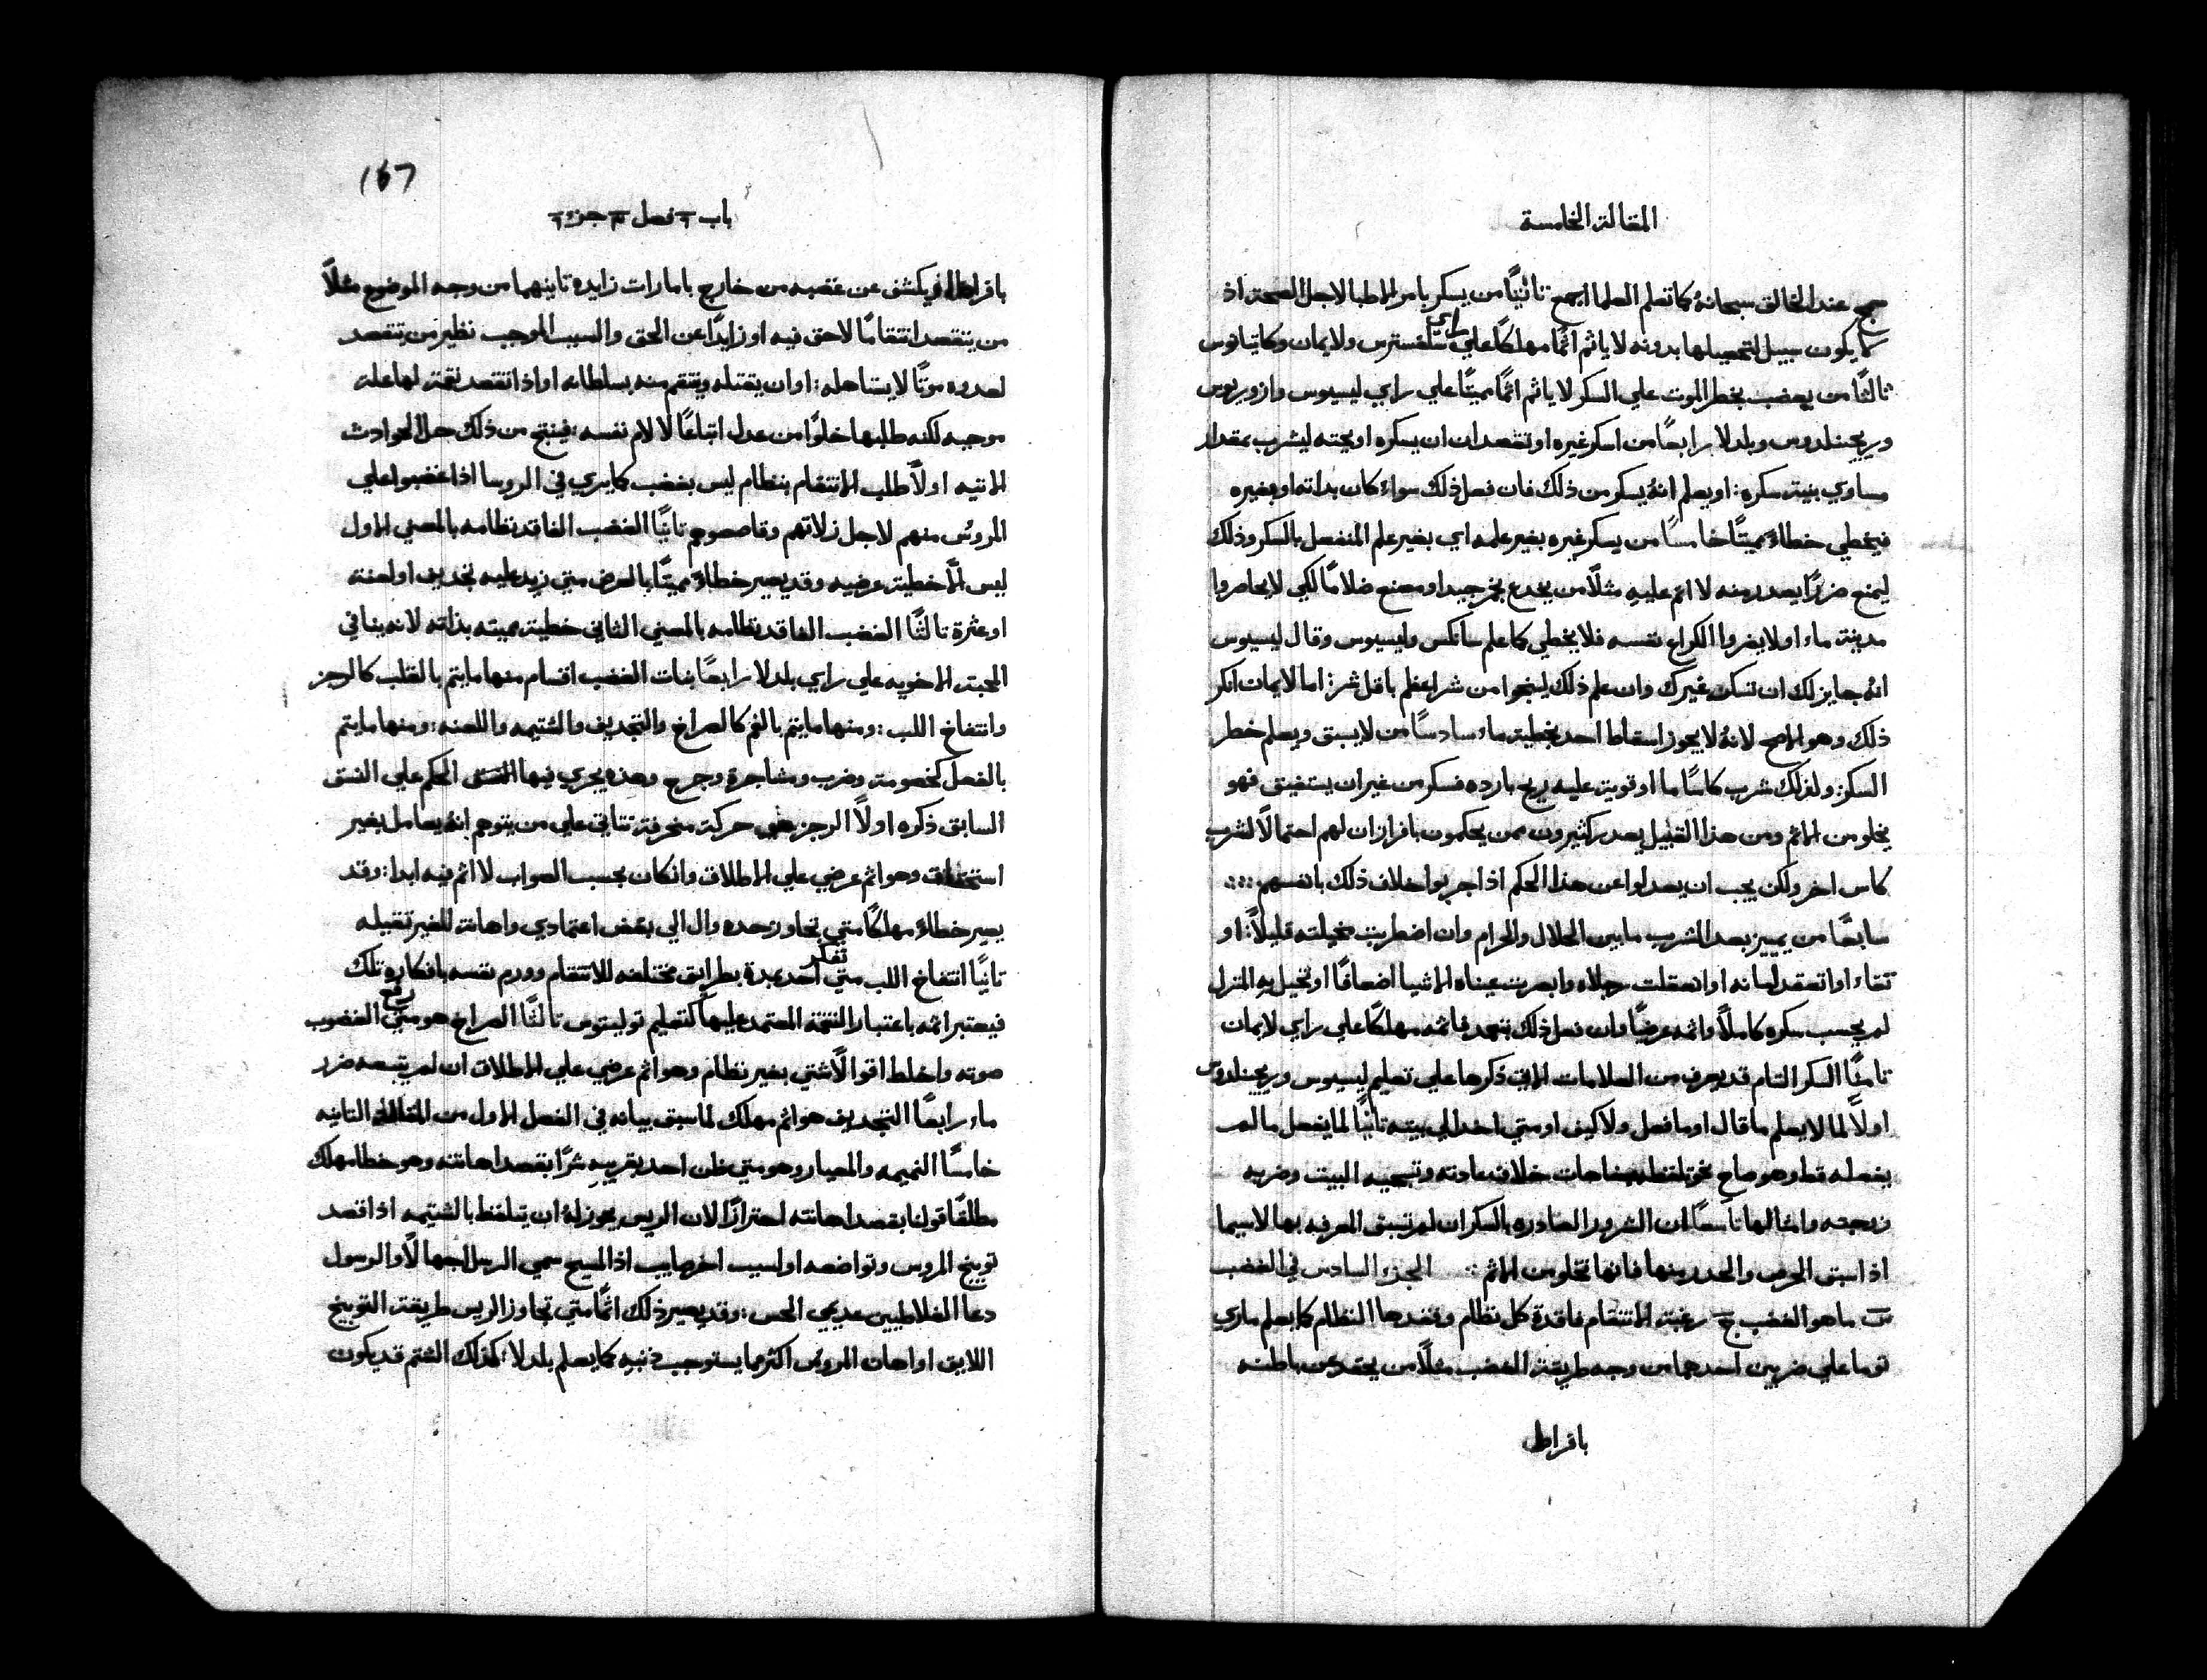 المقالة الخامسة
سمج عند الخالق سبحانهُ كما تعلم العلما اجمع تانيًا من يسكر بامر الاطبا لاجل الصحة اذ
لا يكون سبيل لتحصيلها بدونه لا ياثم اثمًا مهلكًا علي راي سلفسترس ولايمان وكايتانوس
ثالثًا من يغصب بخطر الموت علي السكر لا ياثم اثمًا مميتًا علي راي ليسيوس وازوريوس
وريجينلدوس وبلدلا رابعًا من اسكر غيره او تقصد ان يسكره او يحثه ليشرب بمقدار
مساوي بنية سكره: او يعلم انهُ يسكر من ذلك فان فعل ذلك سواء كان بذاته او بغيره
فيخطي خطاءً مميتًا خامسًا من يسكر غيره بغير علمه اي بغير علم المنفعل بالسكر وذلك
ليمنع ضررًا يصدر منه لا اثم عليهِ مثلًا من يخدع بخمر جيد او مصنع غلامًا لكي لا يحاصروا
مدينة ماء او لا يضروا الكراع نفسه فلا يخطي كما علم سانكس وليسيوس وقال ليسيوس
انهُ جايز لك ان تسكر غيرك وان علم ذلك لينجوا من شر اعظم باقل شر: اما لايمان انكر
ذلك وهو الاصح لانهُ لا يجوز اسقاط احد بخطية ماء سادسًا من لا يسبق ويعلم خطر
السكر: ولذلك شرب كاسًا ما او قويت عليه ريح بارده فسكر من غير ان يستفيق فهو
يخلو من الاثم ومن هذا القبيل يعدر كثيرون ممن يحكمون بافراز ان لهم احتمالًا لشرب
كاس اخر ولكن يجب ان يعدلوا عن هذا الحكم اذا جربوا خلاف ذلك بانفسهم
سابعًا من يميز بعد الشرب ما بين الحلال والحرام وان اضطربت مخيلته قليلًا: او
تقاء او اتعقد لسانه او اتعقلت رجلاه وابصرت عيناه الاشيا اضعافًا او تخيل بهِ المنزل
لم يحسب سكره كاملًا واثمه عرضيًا وان فعل ذلك بتعمد فاثمه مهلكًا علي راي لايمان
ثامنًا السكر التام قد يعرف من العلامات الاتي ذكرها علي تعليم ليسيوس وريجينلدوس
اولًا لما لا يعلم ما قال او ما فعل ولا كيف او متي اخذ الي بيته ثانيًا لما يفعل ما لم
يفعله قط وهو صاحٍ نحو تلفظه خلاف عادته وتسجيه البيت وضربه
زوجته وامثالها تاسعًا ان الشرور الصادره بالسكر ان لم تسبق المعرفه بها لا سيما
اذا سبق الحرص والحدر منها فانها تخلو من الاثم :: الجزء السادس في الغضب
س ما هو الغضب ج رغبة الانتقام فاقدة كل نظام وتفقدها النظام كما يعلم ماري
توما علي ضربين احدهما من وجه طريقة الغضب مثلًا من يحتد عن باطنه
بافراط
167
باب ٦ فصل ٣ جزء ٦
بافراط او يكشف عن غضبه من خارج بامارات زايده ثانيهما من وجه الموضوع مثلًا
من يتقصد انتقامًا لا حق فيه او زايدًا عن الحق والسبب الموجب نظير من تقصد
لعدوه موتًا لا يستاهله: او ان يقتله وينتقم منه بسلطانه او اذا تقصد نقمة لها علة
موجبه لكنه طلبها خلوًا من عدل اتباعًا لآلام نفسه: فينتج من ذلك حل الحوادث
الاتيه اولًا طلب الانتقام بنظام ليس بغضب كما يري في الروسا اذا غضبوا علي
المروس منهم لاجل زلاتهم وقاصصوهم ثانيًا الغضب الفاقد نظامه بالمعني الاول
ليس الا خطية عرضيه وقد يصير خطاءً مميتًا بالعرض متي زيد عليه تجديف او لعنة
او عثرة ثالثًا الغضب الفاقد نظامه بالمعني الثاني خطية مميته بذاته لانه ينافي
المحبة الاخويه علي راي بلدلا رابعًا بنات الغضب اقسام منها ما يتم بالقلب كالرجز
وانتفاخ اللب: ومنها ما يتم بالفم كالصراخ والتجديف والشتيمه واللعنه: ومنها ما يتم
بالفعل كخصومة وضرب ومشاجرة وجرح وهذه يجري فيها الحكم علي النسق
السابق ذكره اولًا الرجز هو حركة منحرفة تتاتي علي من يتوهم انهُ يعامل بغير
استحقاق وهو اثم عرضي علي الاطلاق وان كان بحسب الصواب لا اثم فيه ابدا: وقد
يصير خطاءً مهلكًا متي تجاوز حده وال الي بغض اعتمادي واهانة للغير ثقيله
تانيًا انتفاخ اللب متي تفكر احد بطرايق مختلفه للانتقام وورم نفسه بافكاره تلك
فيعتبر اثمه باعتبار النقمة المعتمد عليها كتعليم توليتوس ثالثًا الصراخ هو متي رفع الغضوب
صوته واخلط اقوالًا شتي بغير نظام وهو اثم عرضي علي الاطلاق ان لم يتبعه ضرر
ماء رابعًا التجديف هو اثم مهلك لما سبق بيانه في الفصل الاول من المقالة التانيه
خامسًا النميمه والمعيار وهو متي ظن احد بقريبهِ شرًا بقصد اهانته وهو خطا مهلك
مطلقًا قولنا بقصد اهانته احترازًا لان الريس يجوز لهُ ان يتلفظ بالشتيمه اذا قصد
توبيخ المروس وتواضعه او لسبب اخر صايب اذ المسيح سمي الرسل جهالًا والرسول
دعا الغلاطيين عديمي الحس: وقد يصير ذلك اثمًا متي تجاوز الريس طريقة التوبيخ
اللايق او اهان المروس اكثر مما يستوجب ذنبه كما يعلم بلدلا: كذلك الشتم قد يكون